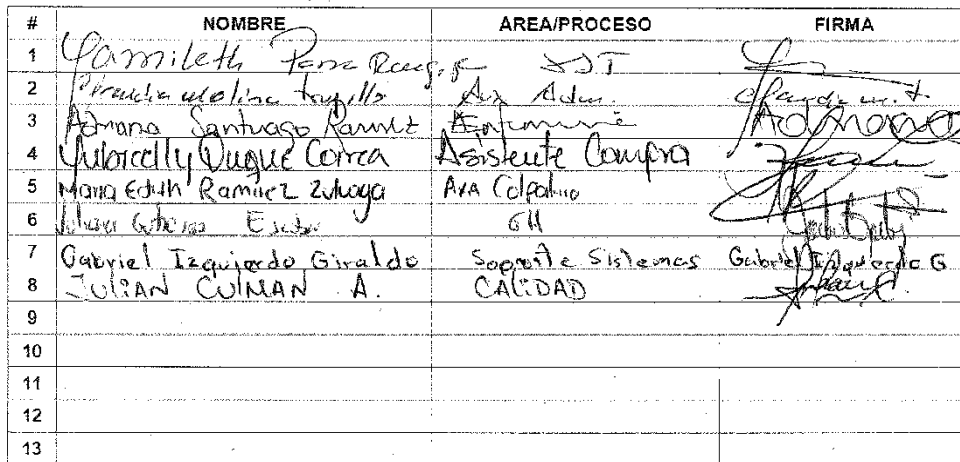 # NOMBRE AREA/PROCESO FIRMA
1 Yamileth Parra SST
2 Claudia Molina Trujillo Aux Adm.
3 Adriana Santiago Ramirez Adriana
4 Yuloricelly Duque Correa Asistente Compra
5 Maria Edith Ramirez Zuluaga Axa Colpatria
6 GH
7 Gabriel Izquierdo Giraldo Soporte Sistemas Gabriel Izquierdo G
8 JULIAN CULMAN A. CALIDAD
9
10
11
12
13